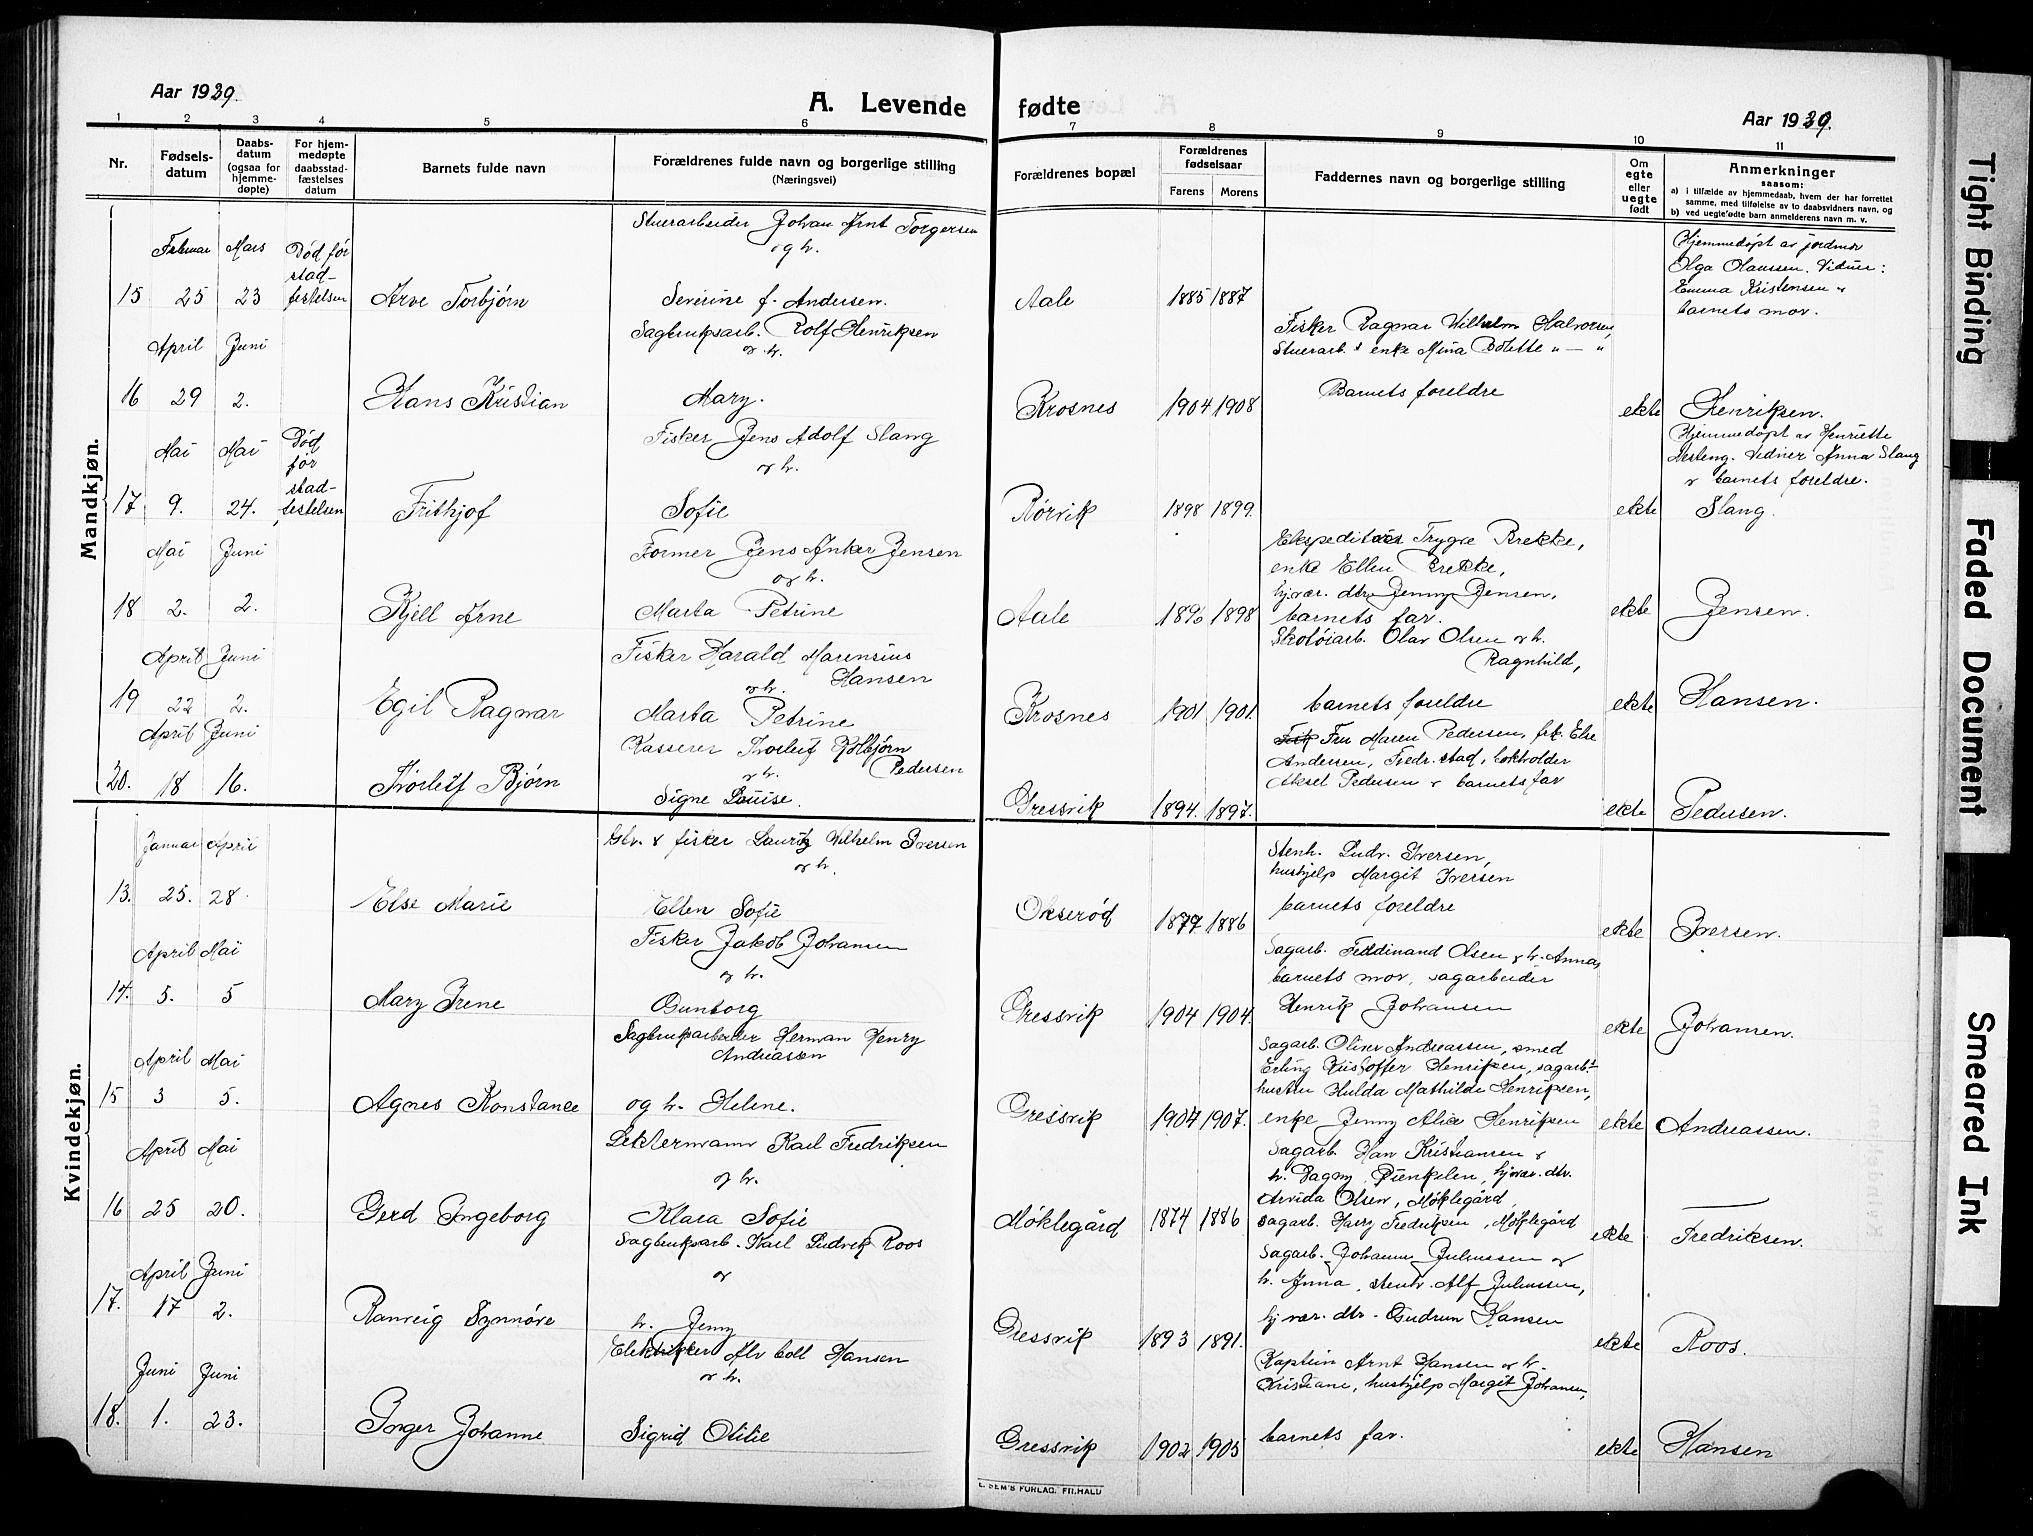 Aar 1929.
A. Levende
fødte
Aar 1929.
1 2 3 4 5 6 7 8 9 10 11
Nr.
Fødsels-
datum
Daabs-
datum
(ogsaa for
hjemme-
døpte)
For hjem-
medøpte
daabsstad-
fæstelses
datum
Barnets fulde navn
Forældrenes fulde navn og borgerlige stilling
(Næringsvei)
Forældrenes bopæl
Forældrenes
fødselsaar
Farens Morens
Faddernes navn og borgerlige stilling
Om
egte
eller
uegte
født
Anmerkninger
saasom:
a) i tilfælde av hjemmedaab, hvem der har forrettet
samme, med tilføielse av to daabsvidners navn, og
b) ved uegte fødte barn anmelderens navn m. v.
Mandkjøn.
Stuerarbeider Johan Arnt Torgersen
og h.
Februar Mars Død før
stad-
15 25 23 festelsen Arve Torbjørn Severine f. Andersen. Aale 1885 1887
Hjemmedøpt av jordmor
Olga Olaussen. Vidner:
Emma Kristensen &
barnets mor.
Sagbruksarb. Rolf Henriksen
& h.
Fisker Ragnar Wilhelm Halvorsen,
Stuerarb. & enke Mina Bolette " — "
April Juni
16 29 2. Hans Kristian Mary. Krosnes 1904 1908 Barnets foreldre ekte Henriksen.
Fisker Jens Adolf Slang
& h.
Mai Mai Død
før
stad-
17 9. 24. festelsen Frithjof Sofie Rørvik 1898 1899. ekte Slang.
Hjemmedøpt av Henriette
Vidner Anna Slang
& barnets foreldre.
Mai Juni
Former Jens Anker Jensen
og h.
Ekspeditør Trygve Brekke,
enke Ellen Brekke,
hjvær. dtr. Jenny Jensen,
18 2. 2. Kjell Arne Marta Petrine Aale 1896 1898 barnets far. ekte Jensen.
April Juni
Fisker Harald Marensius
Hansen
& h.
Skotøiarb. Olav Olsen & h.
Ragnhild,
19 22 2. Egil Ragnar Marta Petrine Krosnes 1901 1901. barnets foreldre ekte Hansen.
April Juni
Kasserer Thorleif Kolbjørn
Pedersen
& h.
Fru Maren Pedersen, frk. Else
Andersen, Fredr.stad, bokholder
Aksel Pedersen & barnets far
20. 18 16. Thorleif Bjørn Signe Louise. Gressvik 1894. 1897. ekte Pedersen.
Kvindekjøn.
Januar April
Gbr. & fisker Lauritz Wilhelm Iversen
& h.
Stenh. Ludv. Iversen,
hushjelp Margit Iversen
13. 25. 28 Else Marie Ellen Sofie Okserød 1877 1886 barnets foreldre ekte Iversen.
April Mai
Fisker Jakob Johansen
& h.
Sagarb. Ferdinand Olsen & h. Anna,
barnets mor, sagarbeider
14. 5. 5 Mary Irene Gunborg Gressvik 1904 1904. Henrik Johansen ekte Johansen.
April Mai
Sagbruksarbeider Herman Henry
Andreassen
Sagarb. Oliver Andreassen, smed
Erling Kristoffer Henriksen, sagarb.
hustru Hulda Mathilde Henriksen,
15 3 5. Agnes Konstance og h. Helene. Gressvik 1904 1907. enke Jenny Alice Henriksen ekte Andreassen.
April Mai
Karl Fredriksen
& h.
Sagarb. Han Kristiansen &
h. Dagny hjvær. dtr.
Arvida Olsen, Møklegård
16 25 20. Gerd Ingeborg Klara Sofie Møklegård 1874 1886 sagarb. Harry Fredriksen, Møklegård ekte Fredriksen.
April Juni
Sagbruksarb. Karl Ludvik Roos
&
Sagarb. Johannes Juliussen &
h. Anna, stenh. Alf Juliussen,
17. 17 2. Ranveig Synnøve h. Jenny Gressvik 1893 1891. hjvær. dtr. Gudrun Hansen ekte Roos.
Juni Juni
Elektriker Alv Coll Hansen
& h.
Kaptein Arnt Hansen & h.
Kristiane, hushjelp Margit Johansen,
18. 1. 23. Inger Johanne Sigrid Otilie Gressvik 1902 1905 barnets far. ekte Hansen
E. SEM'S FORLAG. FR.HALD
Tight Binding
Faded Document
Smeared Ink